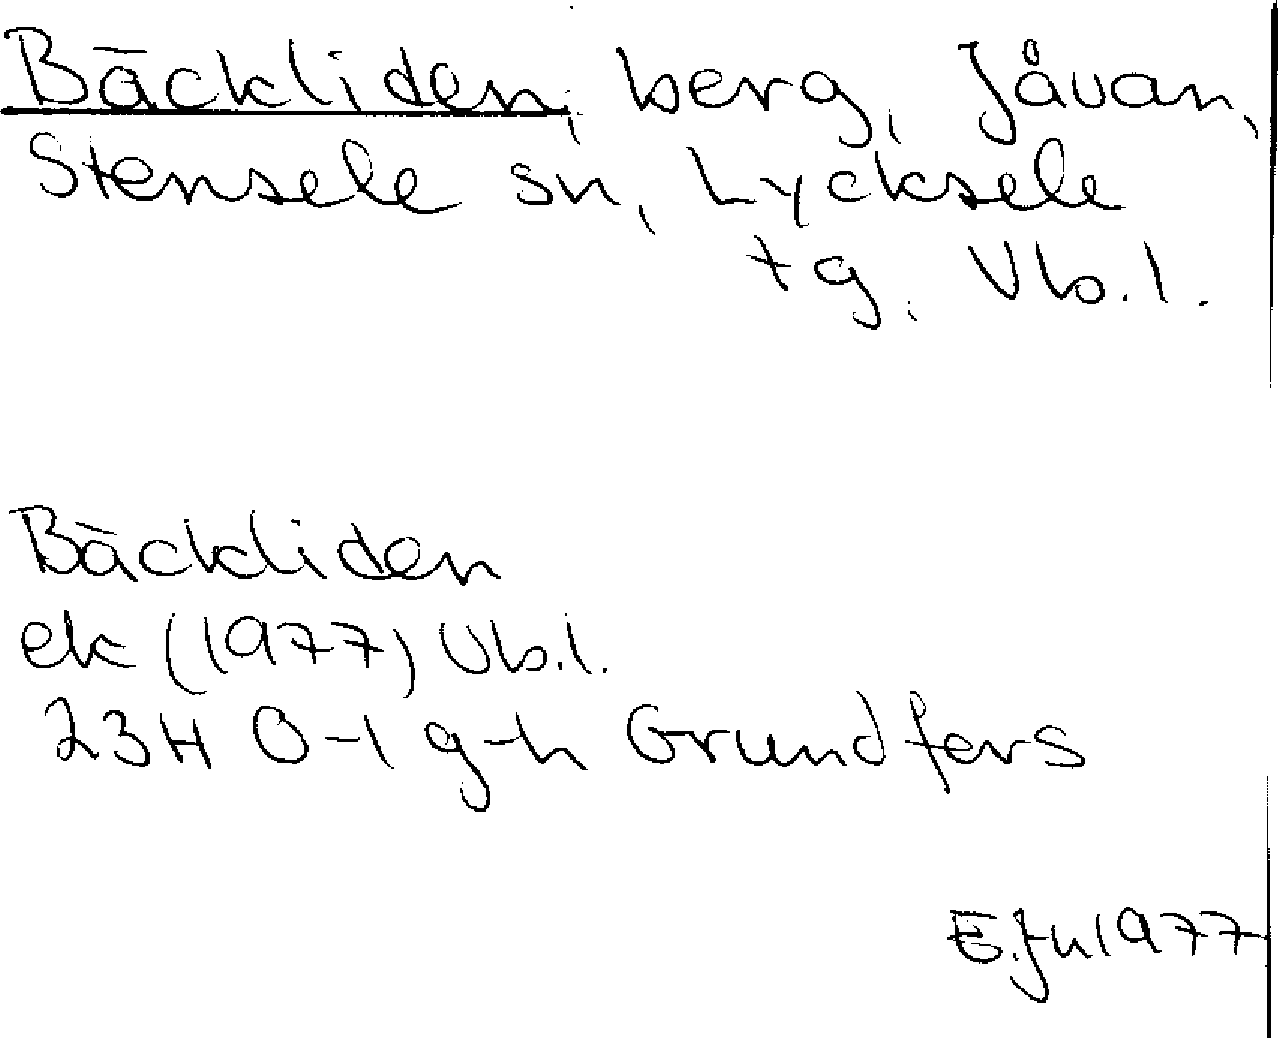 Bäckliden, berg, Jåvan,
Stensele sn, Lycksele
tg, Vb.l.
Bäckliden
ek (1977) Vb.l.
23H 0-1 g-h Grundfors
E.Jn 1977